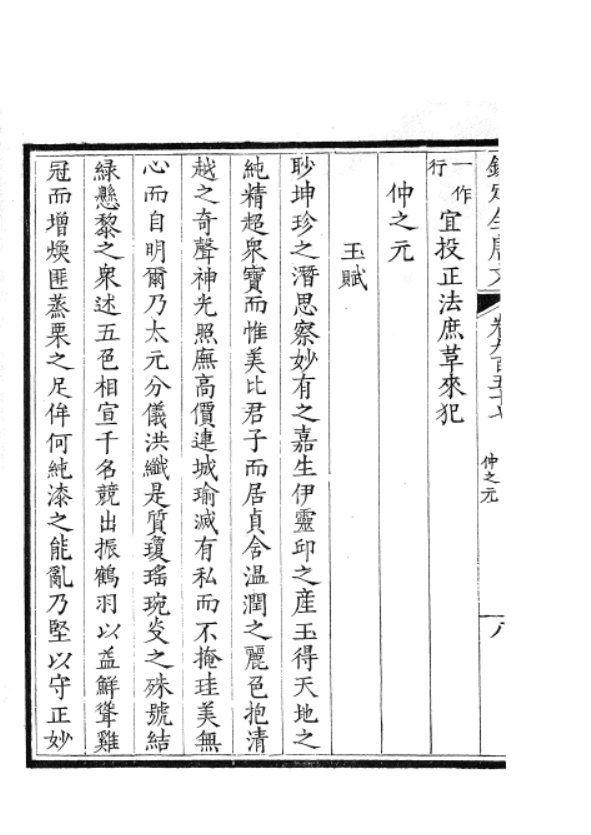 欽定全唐文 卷九百五十七 仲之元 八
一作行宜投正法庶草來犯
仲之元
玉賦
眇坤珍之潛思察妙有之嘉生伊靈邱之産玉得天地之
純精超衆寶而惟美比君子而居貞含溫潤之麗色抱清
越之奇聲神光照廡高價連城瑜滅有私而不掩珪美無
心而自明爾乃太元分儀洪纖是質瓊瑤琬炎之殊號結
綠懸黎之衆述五色相宣千名競出振鶴羽以益鮮聳雞
冠而增煥匪蒸栗之足侔何純漆之能亂乃堅以守正妙